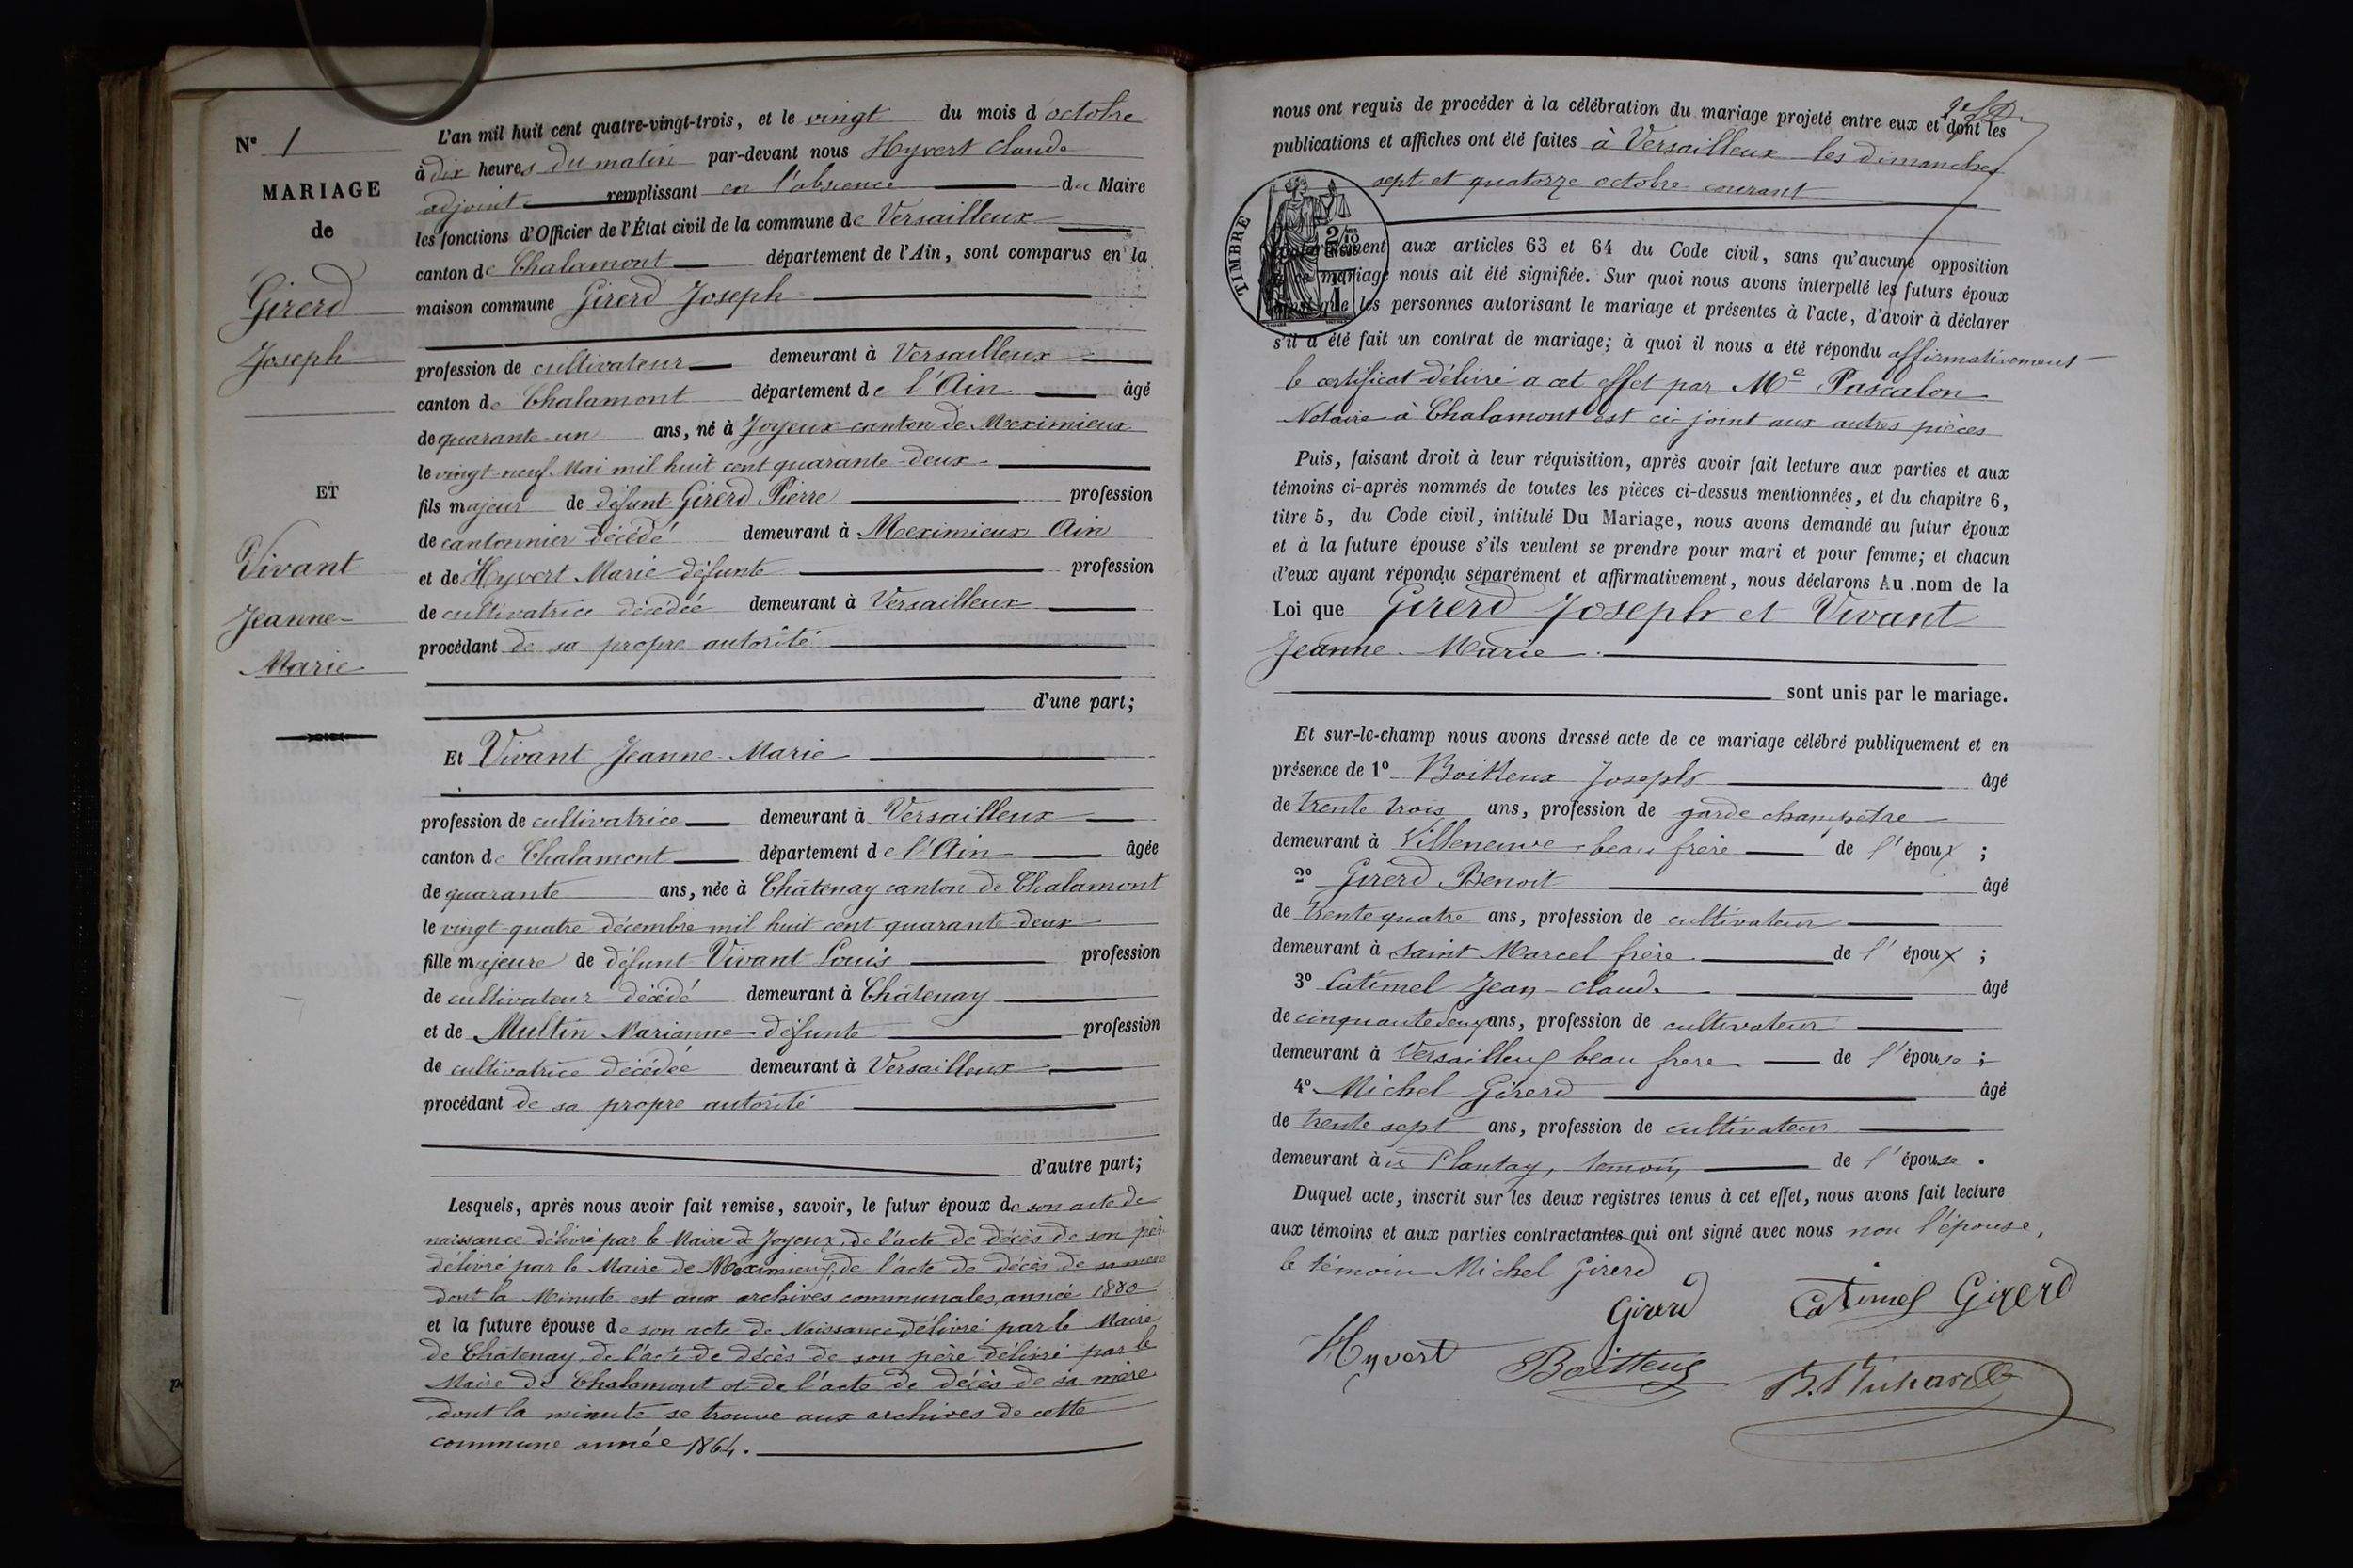 N° 1
MARIAGE
de
Girerd
Joseph
ET
Vivant
Jeanne-
Marie
L'an mil huit cent quatre-vingt-trois, et le vingt du mois d'octobre
à dix heures du matin par-devant nous Hyvert Claude
adjoint remplissant en l'absence du Maire
les fonctions d'Officier de l'État civil de la commune de Versailleux
canton de Chalamont département de l'Ain, sont comparus en la
maison commune Girerd Joseph
profession de cultivateur demeurant à Versailleux
canton de Chalamont département de l'Ain âgé
de quarante-un ans, né à Joyeux canton de Meximieux
le vingt-neuf Mai mil huit cent quarante-deux
fils majeur de défunt Girerd Pierre profession
de cantonnier décédé demeurant à Meximieux Ain
et de Hyvert Marie défunte profession
de cultivatrice décédée demeurant à Versailleux
procédant de sa propre autorité
d'une part;
Et Vivant Jeanne-Marie
profession de cultivatrice demeurant à Versailleux
canton de Chalamont département de l'Ain âgée
de quarante ans, née à Châtenay canton de Chalamont
le vingt-quatre décembre mil huit cent quarante-deux
fille majeure de défunt Vivant Louis profession
de cultivateur décédé demeurant à Châtenay
et de Multin Marianne défunte profession
de cultivatrice décédée demeurant à Versailleux
procédant de sa propre autorité
d'autre part;
Lesquels, après nous avoir fait remise, savoir, le futur époux de son acte de
naissance délivré par le Maire de Joyeux, de l'acte de décès de son père
délivré par le Maire de Meximieux, de l'acte de décès de sa mère
dont la Minute est aux archives communales, année 1880
et la future épouse de son acte de Naissance délivré par le Maire
de Châtenay, de l'acte de décès de son père délivré par le
Maire de Chalamont et de l'acte de décès de sa mère
dont la minute se trouve aux archives de cette
commune année 1864.
nous ont requis de procéder à la célébration du mariage projeté entre eux et dont les
publications et affiches ont été faites à Versailleux les dimanches
sept et quatorze octobre courant
TIMBRE
aux articles 63 et 64 du Code civil, sans qu'aucune opposition
mariage nous ait été signifiée. Sur quoi nous avons interpellé les futurs époux
que les personnes autorisant le mariage et présentes à l'acte, d'avoir à déclarer
s'il a été fait un contrat de mariage; à quoi il nous a été répondu affirmativement
le certificat délivré a cet effet par Me Pascalon
Notaire à Chalamont est ci-joint aux autres pièces
Puis, faisant droit à leur réquisition, après avoir fait lecture aux parties et aux
témoins ci-après nommés de toutes les pièces ci-dessus mentionnées, et du chapitre 6,
titre 5, du Code civil, intitulé Du Mariage, nous avons demandé au futur époux
et à la future épouse s'ils veulent se prendre pour mari et pour femme; et chacun
d'eux ayant répondu séparément et affirmativement, nous déclarons Au nom de la
Loi que Girerd Joseph et Vivant
Jeanne-Marie
sont unis par le mariage.
Et sur-le-champ nous avons dressé acte de ce mariage célébré publiquement et en
présence de 1° Boitteux Joseph âgé
de trente trois ans, profession de garde champêtre
demeurant à Villeneuve beau frère de l'époux ;
2° Girerd Benoit âgé
de trente quatre ans, profession de cultivateur
demeurant à Saint Marcel frère de l'époux ;
3° Catimel Jean-Claude âgé
de cinquante deux ans, profession de cultivateur
demeurant à Versailleux beau frere de l'épouse ;
4° Michel Girerd âgé
de trente sept ans, profession de cultivateur
demeurant à Plantay, temoin de l'épouse .
Duquel acte, inscrit sur les deux registres tenus à cet effet, nous avons fait lecture
aux témoins et aux parties contractantes qui ont signé avec nous non l'épouse,
le témoin Michel Girerd
Girerd Catimel Girerd
Hyvert Boitteux